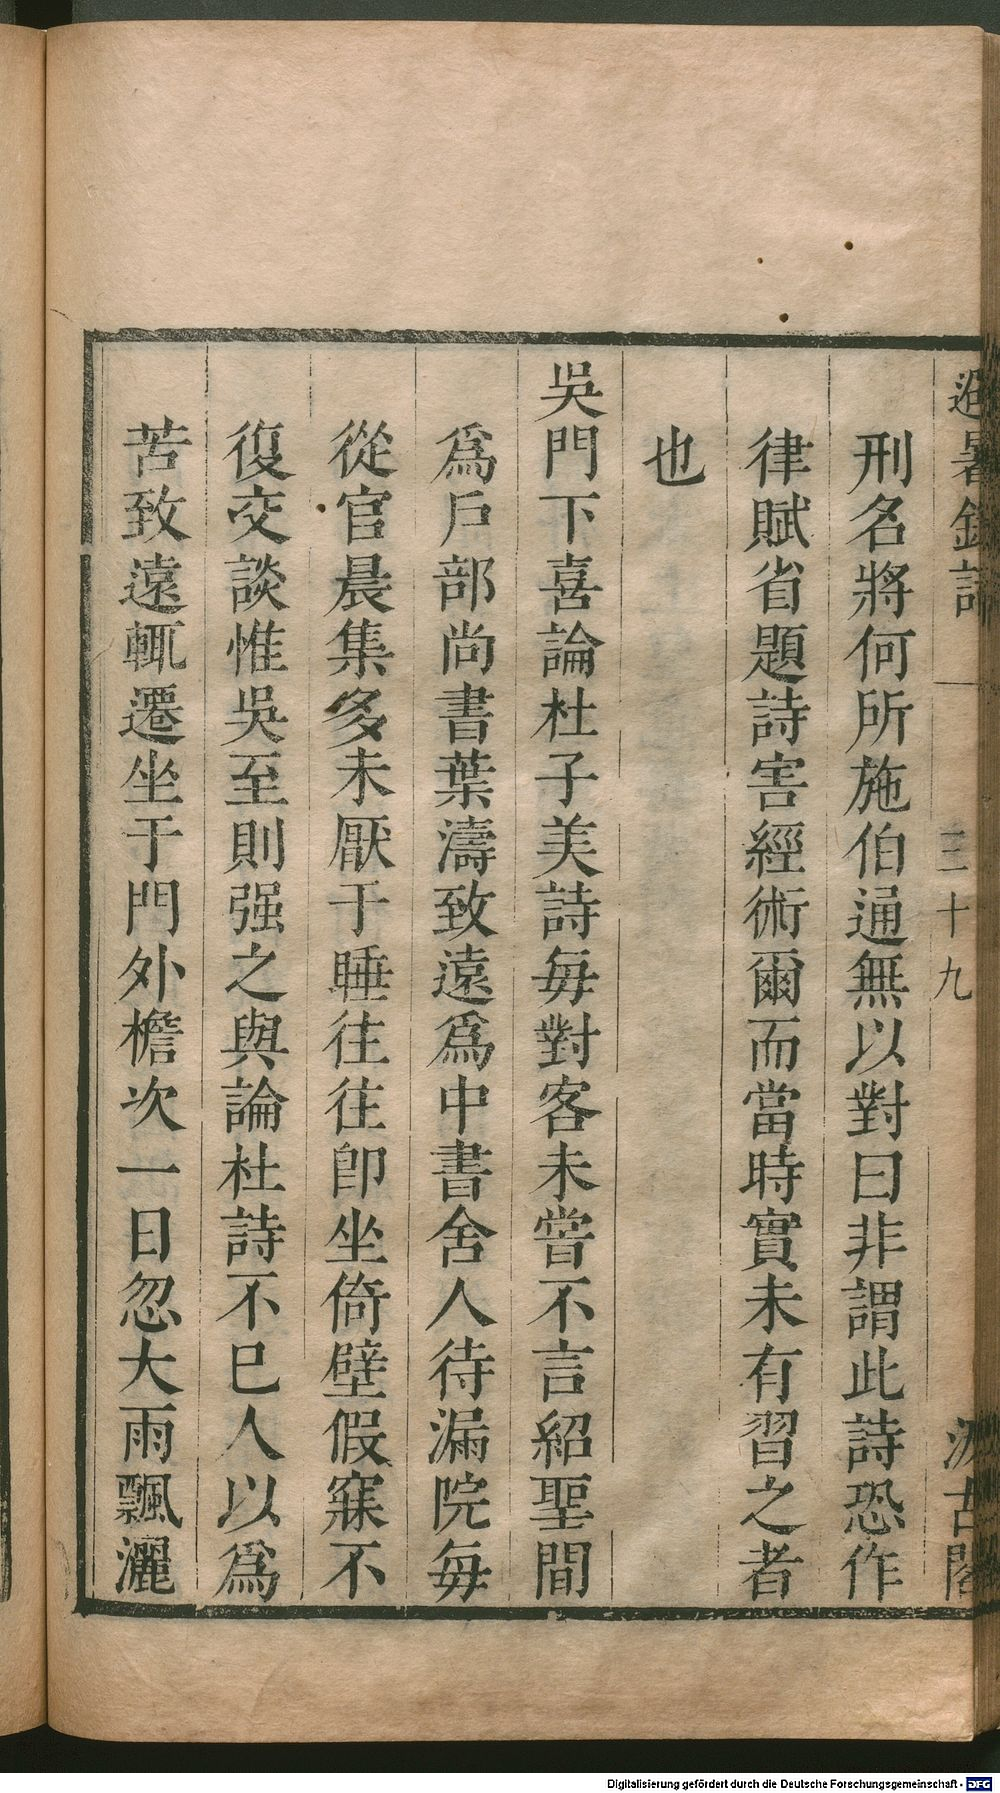 避暑錄話
三十九
汲古閣
刑名將何所施伯通無以對曰非謂此詩恐作
律賦省題詩害經術爾而當時實未有習之者
也
吳門下喜論杜子美詩每對客未嘗不言紹聖間
爲戶部尚書葉濤致遠爲中書舍人待漏院每
從官晨集多未厭于睡往往卽坐倚壁假寐不
復交談惟吳至則强之與論杜詩不已人以爲
苦致遠輒遷坐于門外檐次一日忽大雨飄灑
Digitalisierung gefördert durch die Deutsche Forschungsgemeinschaft - DFG